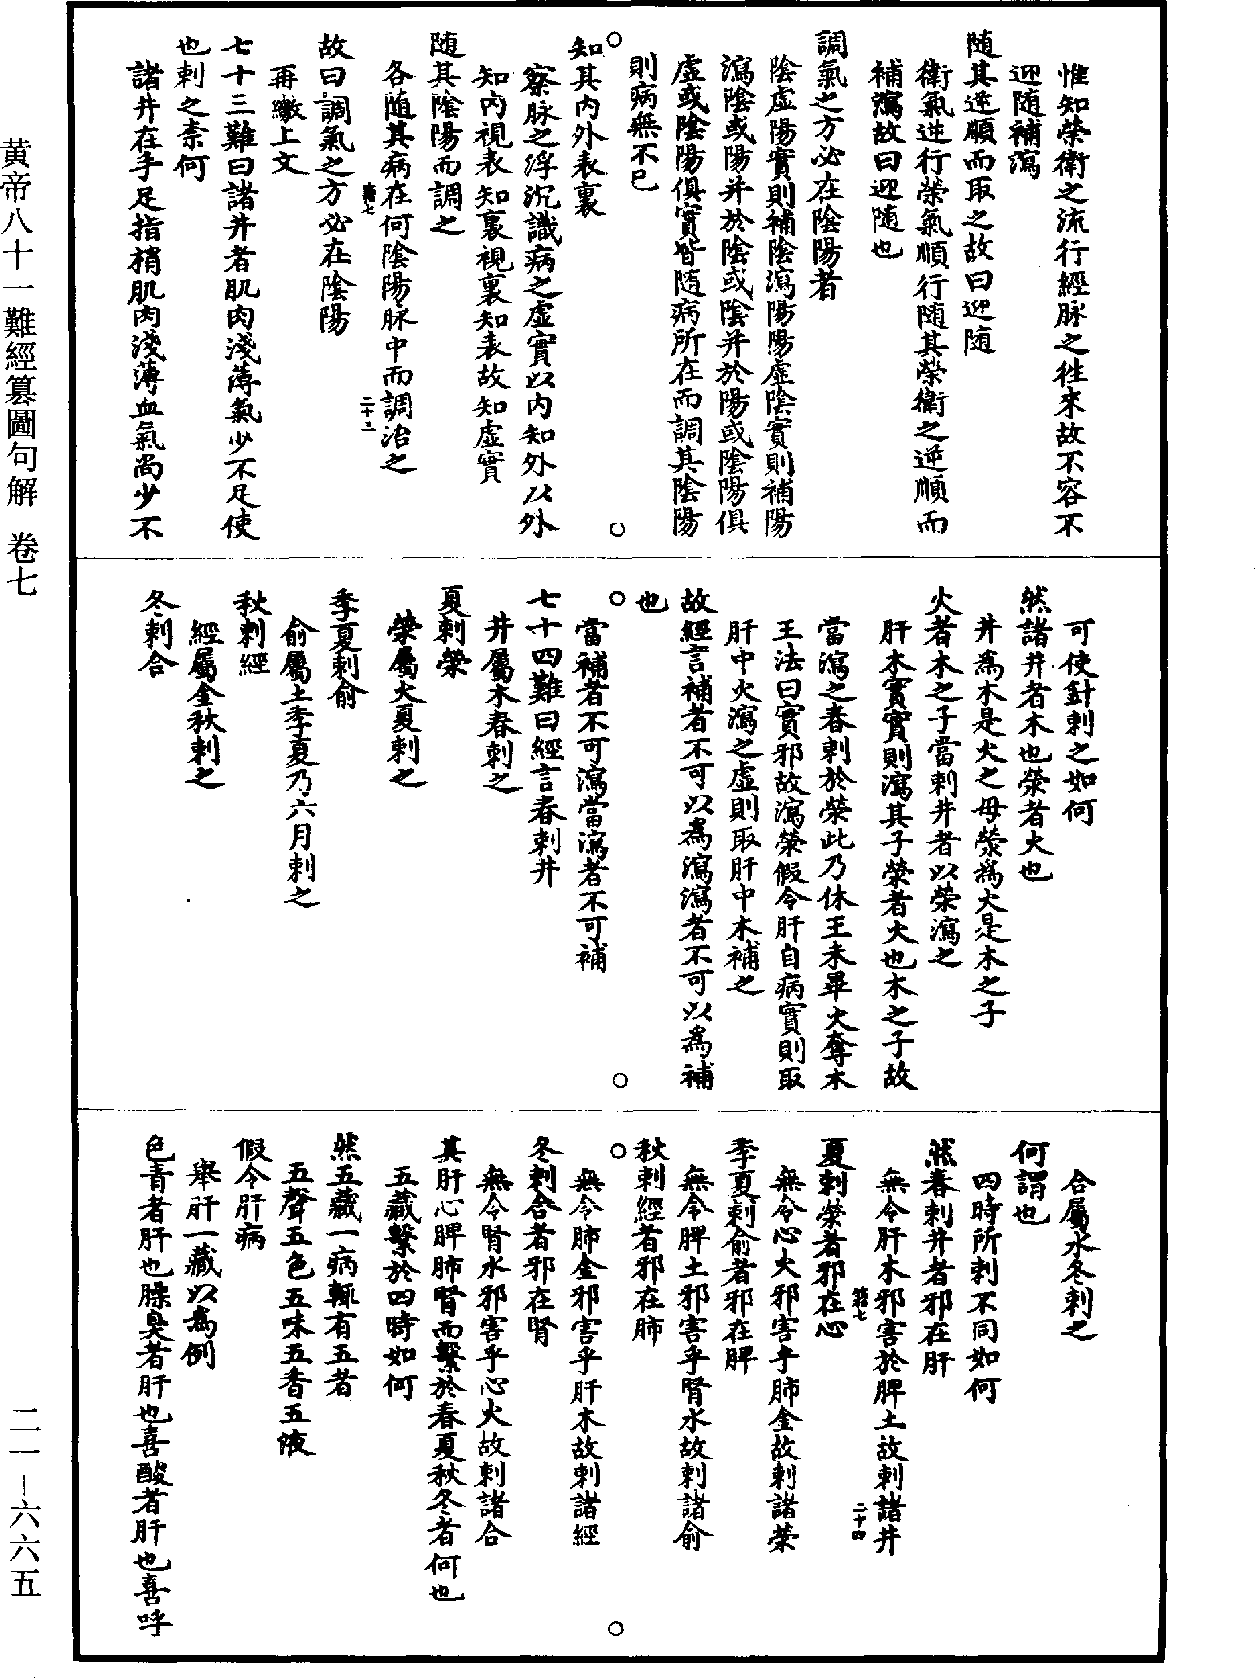 惟知榮衛之流行經脉之往來故不容不
迎随補瀉
随其逆順而取之故曰迎随
衛氣逆行榮氣順行随其榮衛之逆順而
補瀉故曰迎随也
調氣之方必在陰陽者
陰虛陽實則補陰瀉陽陽虛陰實則補陽
瀉陰或陽并於陰或陰并於陽或陰陽俱
虛或陰陽俱實皆随病所在而調其陰陽
則病無不已
知其内外表裏
察脉之浮沉識病之虛實以内知外以外
知内視表知裏視裏知表故知虛實
随其陰陽而調之
各随其病在何陰陽脉中而調治之
難七 二十三
故曰調氣之方必在陰陽
再繳上文
七十三難曰諸井者肌肉淺薄氣少不足使
也刺之柰何
諸井在手足指梢肌肉淺薄血氣尚少不
可使針刺之如何
然諸井者木也榮者火也
井爲木是火之母滎爲火是木之子
火者木之子當刺井者以榮瀉之
肝木實實則瀉其子榮者火也木之子故
當瀉之春刺於榮此乃休王未畢火奪木
王法曰實邪故瀉榮假令肝自病實則取
肝中火瀉之虛則取肝中木補之
故經言補者不可以爲瀉瀉者不可以爲補
也
當補者不可瀉當瀉者不可補
七十四難曰經言春刺井
井屬木春刺之
夏刺榮
榮屬火夏刺之
季夏刺俞
俞屬土季夏乃六月刺之
秋刺經
經屬金秋刺之
冬刺合
合屬水冬刺之
何謂也
四時所刺不同如何
然春刺井者邪在肝
無令肝木邪害於脾土故刺諸井
難七 二十四
夏刺榮者邪在心
無令心火邪害乎肺金故刺諸榮
季夏刺俞者邪在脾
無令脾土邪害乎腎水故刺諸俞
秋刺經者邪在肺
無令肺金邪害乎肝木故刺諸經
冬刺合者邪在腎
無令腎水邪害乎心火故刺諸合
其肝心脾肺腎而繫於春夏秋冬者何也
五藏繫於四時如何
然五藏一病輒有五者
五聲五色五味五香五液
假令肝病
舉肝一藏以爲例
色青者肝也臊臭者肝也喜酸者肝也喜呼
黄帝八十一難經纂圖句解 卷七
二一－六六五